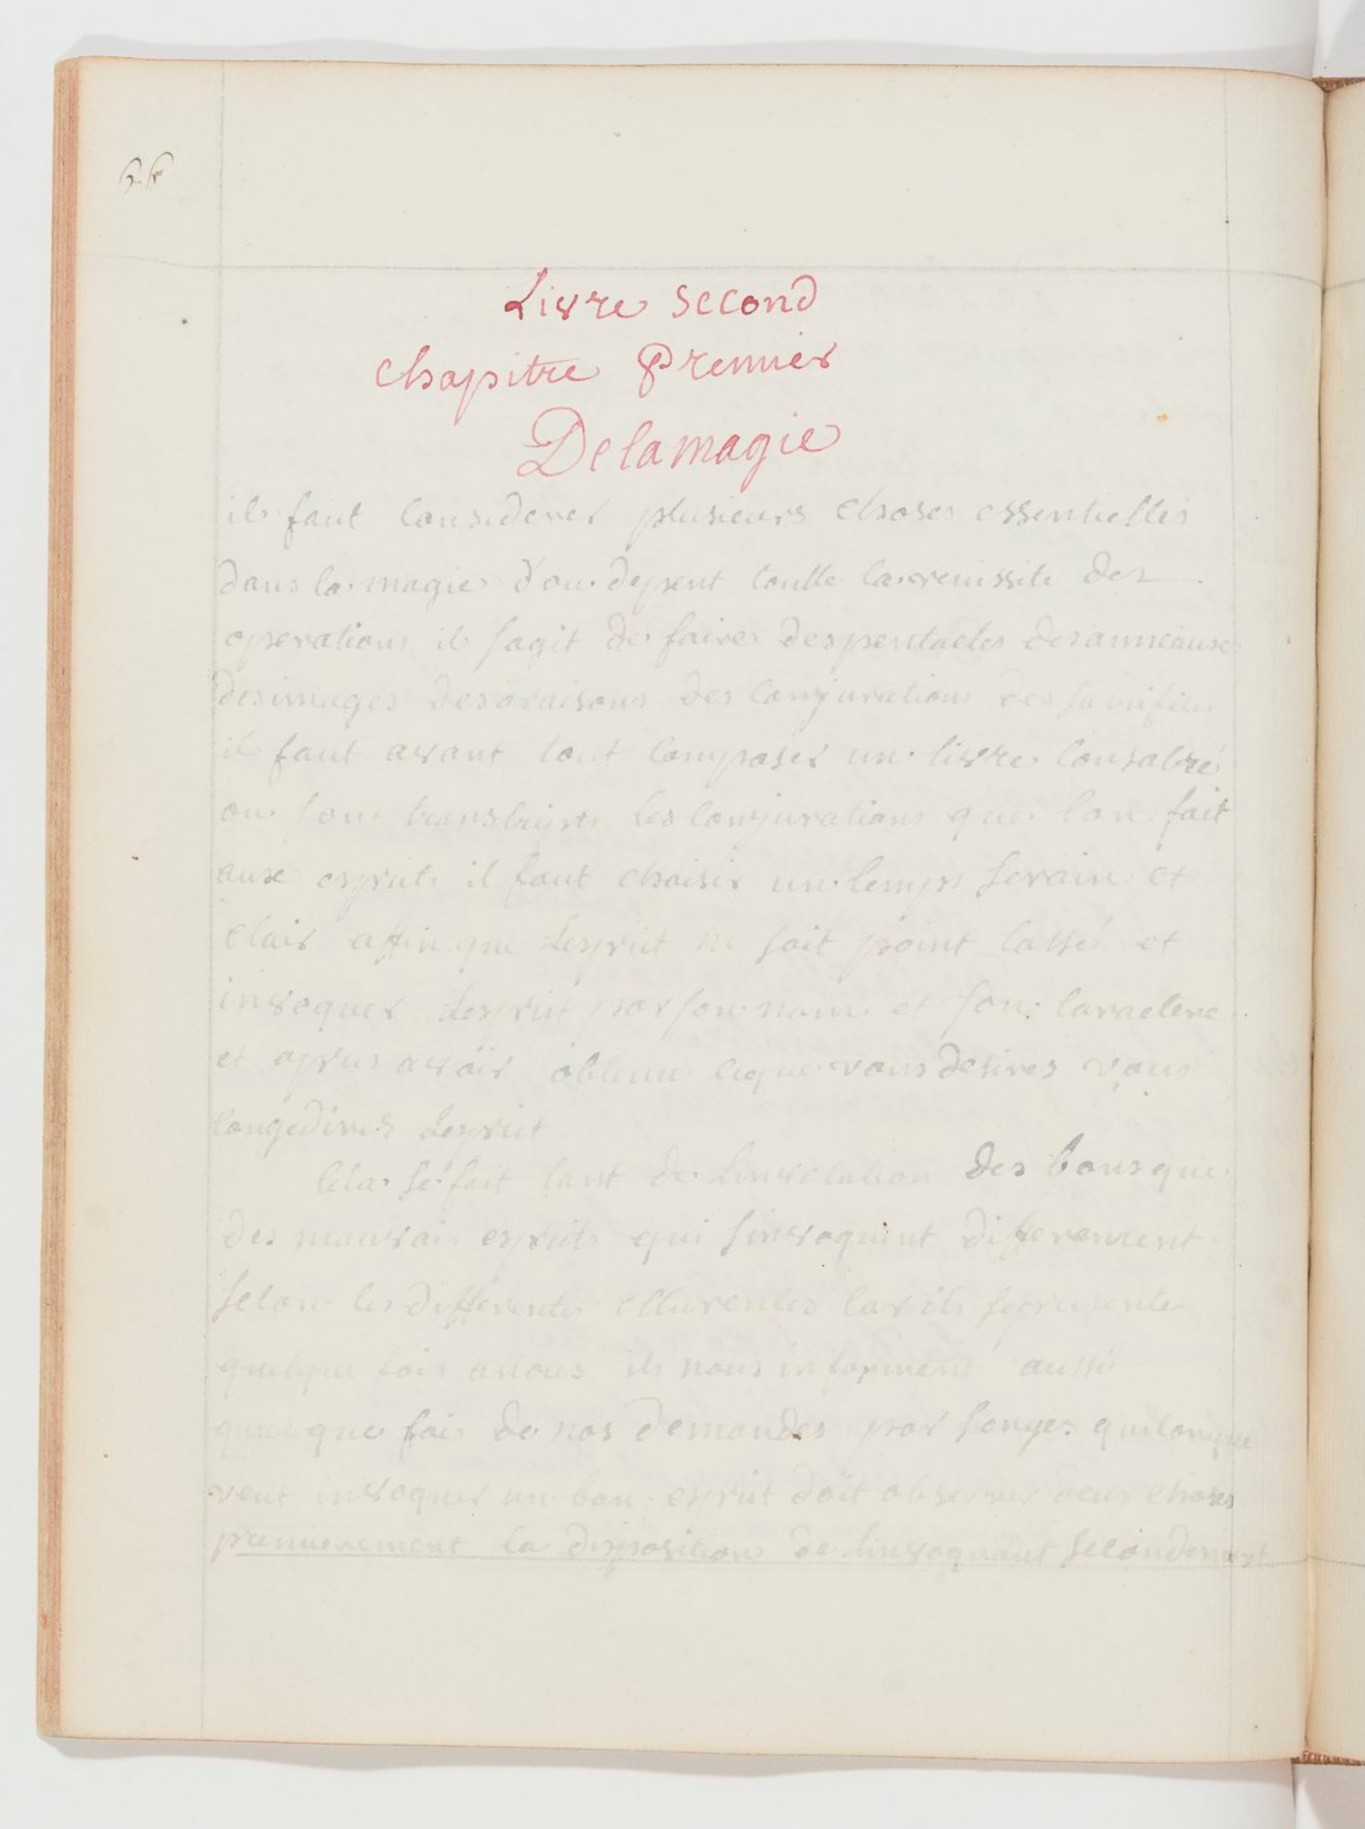 66
Livre second
chapitre Premier
De la magie
il faut considerer plusieurs choses essentielles
dans la magie d'ou depent toutte la reuissite des
operations il sagit de faire des pentacles des anneaux
des images des oraisons des conjurations des
il faut avant tout composer un livre consacré
ou sont les conjurations que lon fait
aux esprits il faut choisir un temps serain et
clair affin que lesprit ne soit point lassé et
invoquer lesprit par son nom et son caractere
et apres avoir obtenu ce que vous desires vous
congedires lesprit
cela se fait tant de linvocation des bons que
des mauvais esprits qui sinvoquent differement
selon les differentes car ils
quelque fois a nous ils nous informent aussi
quelque fois de nos demandes par songes quiconque
veut invoquer un bon esprit doit observer deux choses
premierement la disposition de linvoquant secondement